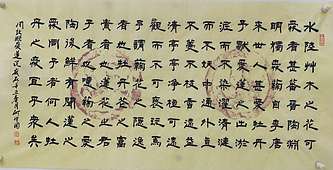 水陸艸木之花可
愛者甚蕃晉陶淵
明獨愛鞠自李唐
來世人甚愛牡丹
予獨愛蓮之出淤
泥而不染濯清漣
而不妖中通外直
不蔓不枝香遠益
清亭亭淨植可遠
觀而不可褻玩焉
予謂鞠花之隱逸
者也牡丹花之富
貴者也蓮花之君
子者也噫鞠之愛
陶後鮮有聞蓮之
愛同予者何人牡
丹之愛宜乎眾矣
周敦頤愛蓮說